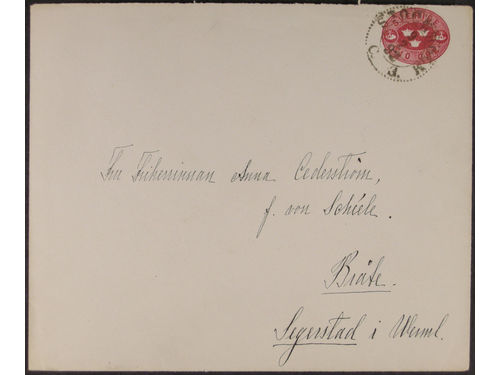 SVERIGE
Fru Friherrinnan Anna Cederström,
f. von Schéele.
Bråte.
Segerstad i Werml.